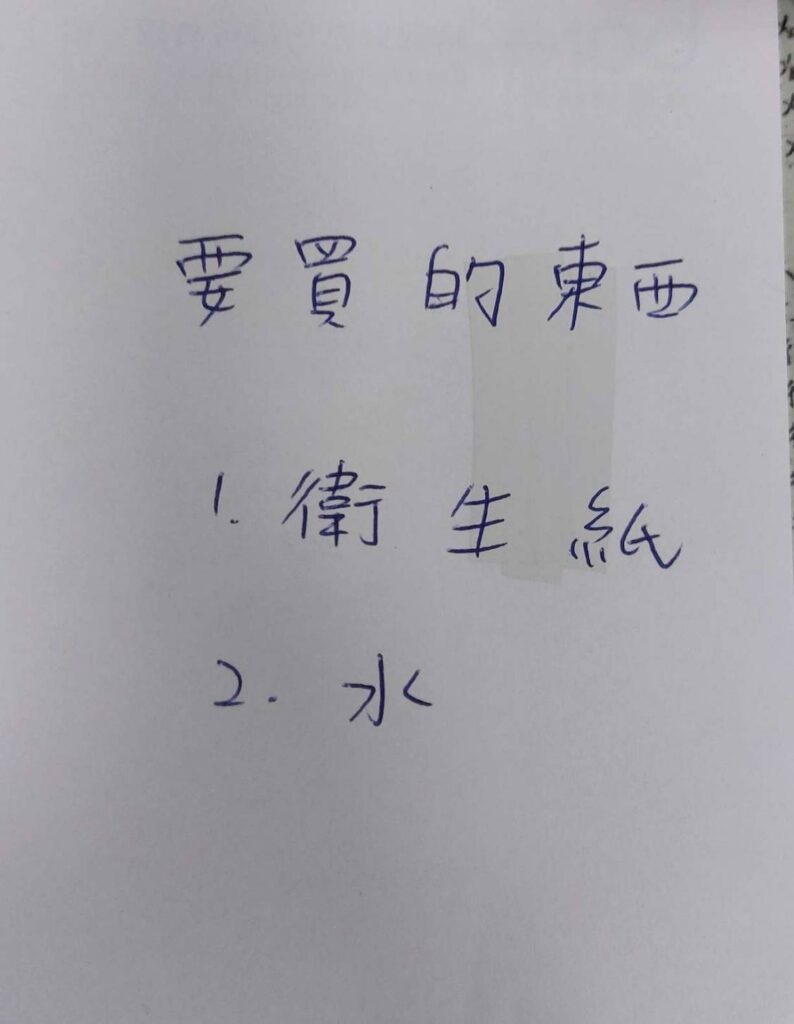 要買的東西
1. 衛生紙
2. 水